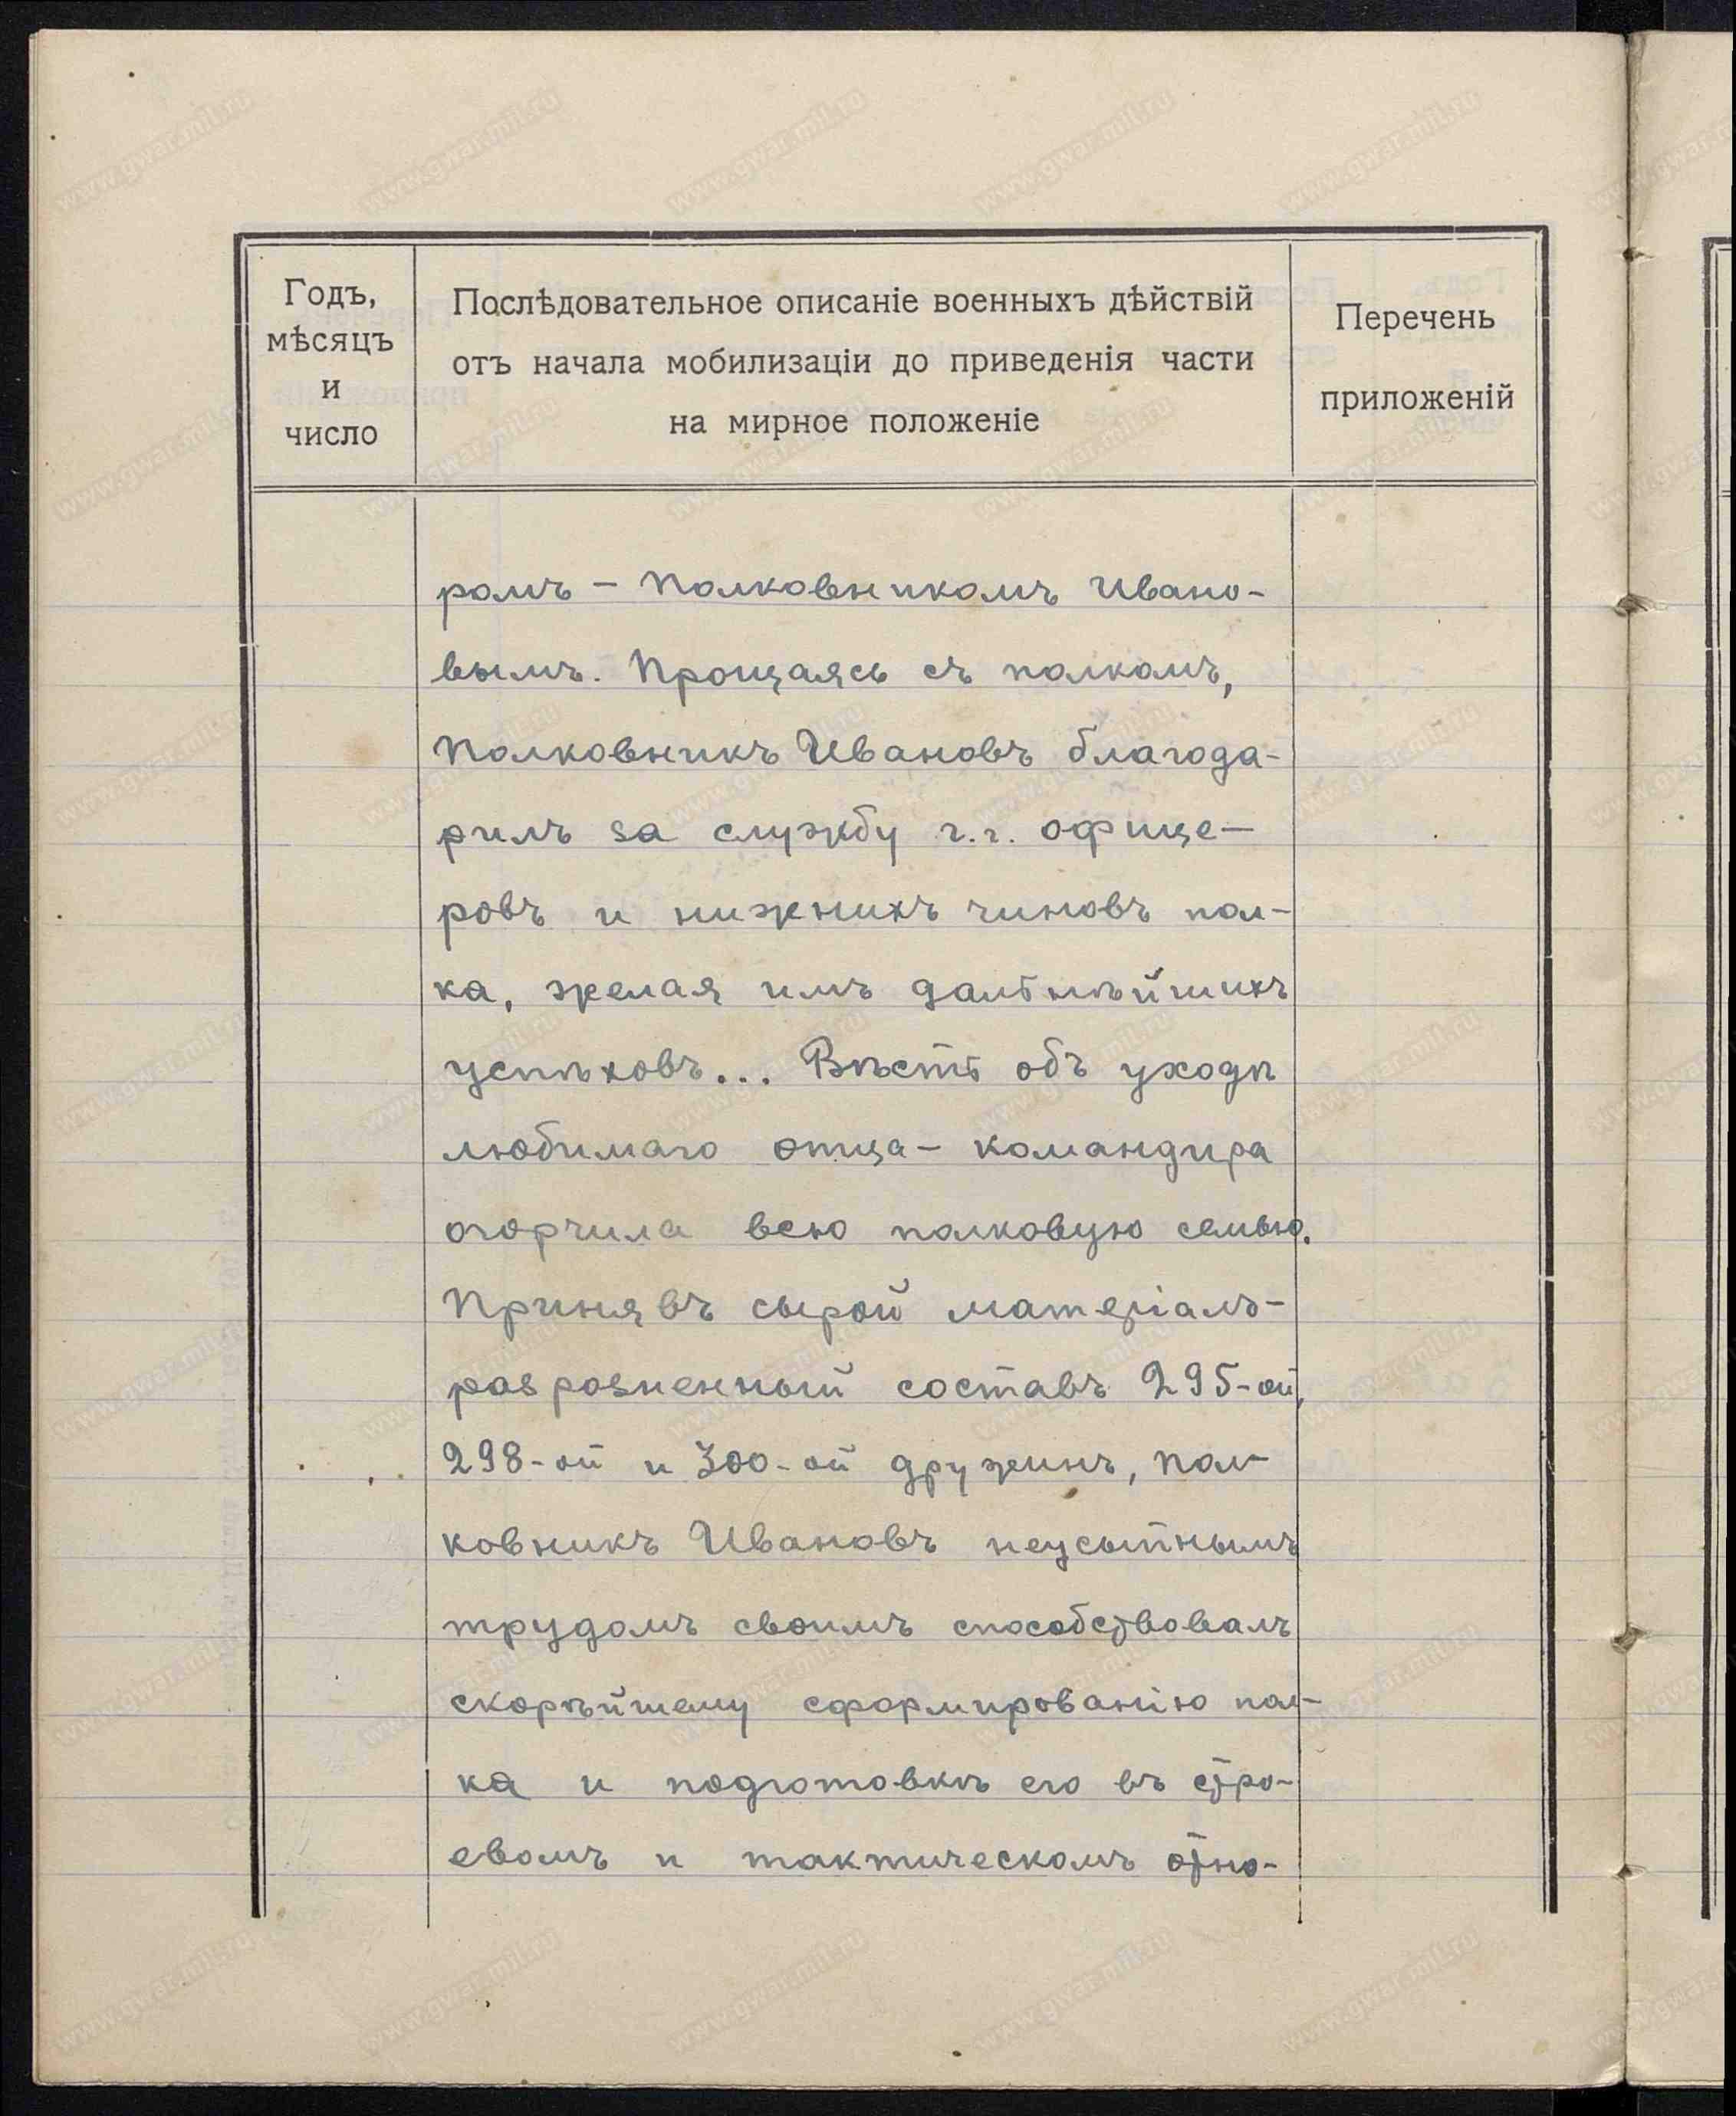 Годъ,
мѣсяцъ
и
число
Послѣдовательное описаніе военныхъ дѣйствій
отъ начала мобилизаціи до приведенія части
на мирное положеніе
Перечень
приложеній
ромъ – Полковникомъ Ивано-
вымъ. Прощаясь съ полкомъ,
Полковникъ Ивановъ благода-
рилъ за службу г.г. офице-
ровъ и нижнихъ чиновъ пол-
ка, желая имъ дальнѣйшихъ
успѣховъ... Вѣсть объ уходѣ
любимаго отца – командира
огорчила всю полковую семью.
Принявъ сырой матеріалъ-
разрозненный составъ 295-ой,
298-ой и 300-ой дружинъ, Пол-
ковникъ Ивановъ неусыпнымъ
трудомъ своимъ способствовалъ
скорѣйшему сформированію пол-
ка и подготовкѣ его въ стро-
евомъ и тактическомъ отно-